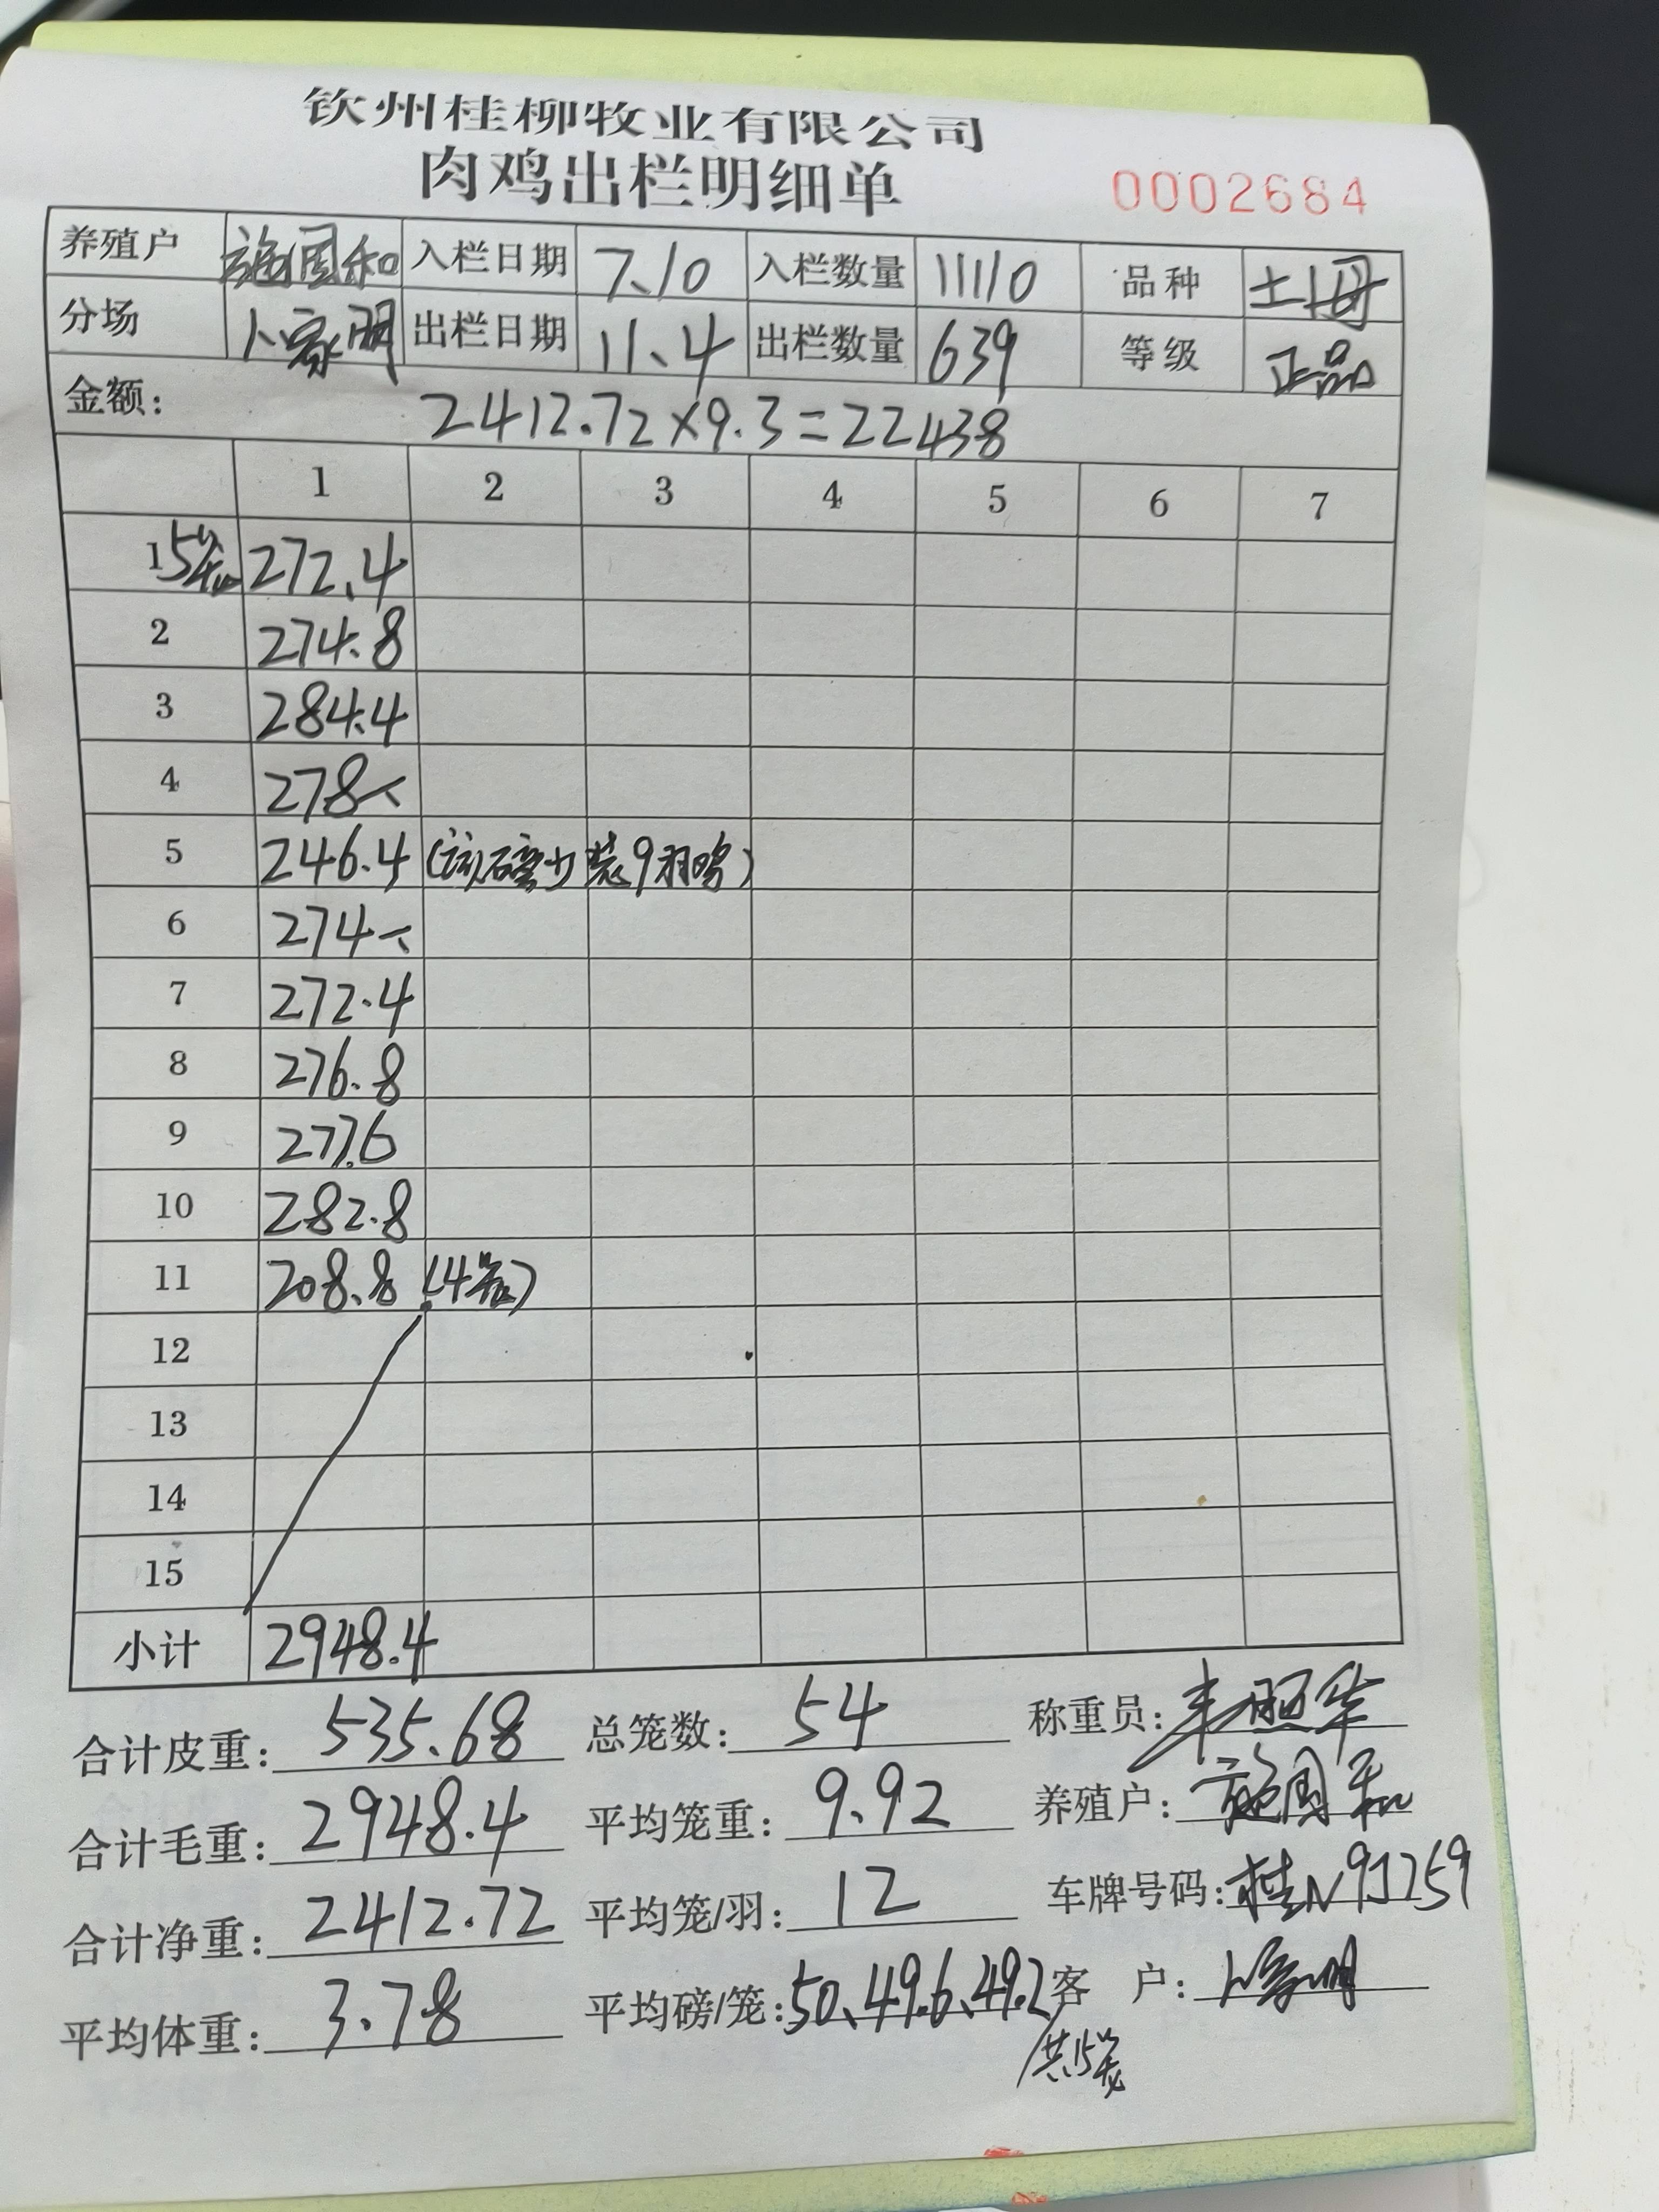 钦州桂柳牧业有限公司
肉鸡出栏明细单
0002684
养殖户 施国和 入栏日期 7.10 入栏数量 11110 品种 土1母
分场 卜家明 出栏日期 11.4 出栏数量 639 等级 正品
金额: 2412.72×9.3=22438
1 2 3 4 5 6 7
1 5笼 272.4
2 274.8
3 284.4
4 278
5 246.4 (该磅少装9羽鸡)
6 274
7 272.4
8 276.8
9 277.6
10 282.8
11 208.8 (4笼)
12
13
14
15
小计 2948.4
合计皮重: 535.68 总笼数: 54 称重员:
合计毛重: 2948.4 平均笼重: 9.92 养殖户: 施国和
合计净重: 2412.72 平均笼/羽: 12 车牌号码: 桂N9J259
平均体重: 3.78 平均磅/笼: 50、49.6、49.2 客 户: 卜家明
/共15笼